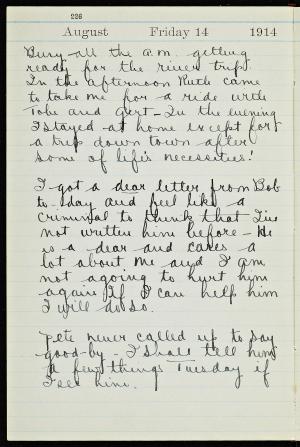 226
August Friday 14 1914
Busy all the a.m. getting
ready for the river trip.
In the afternoon Ruth came
to take me for a ride with
Tobe and Gert - In the evening
I stayed at home except for
a trip down town after
some of life's necessities!
I got a dear letter from Bob
to-day and feel like a
criminal to think that I've
not written him before - He
is a dear and cares a
lot about me and I am
not agoing to hurt him
again if I can help him
I will do so.
Pete never called up to say
good-by - I shall tell him
a few things Tuesday if
I see him.